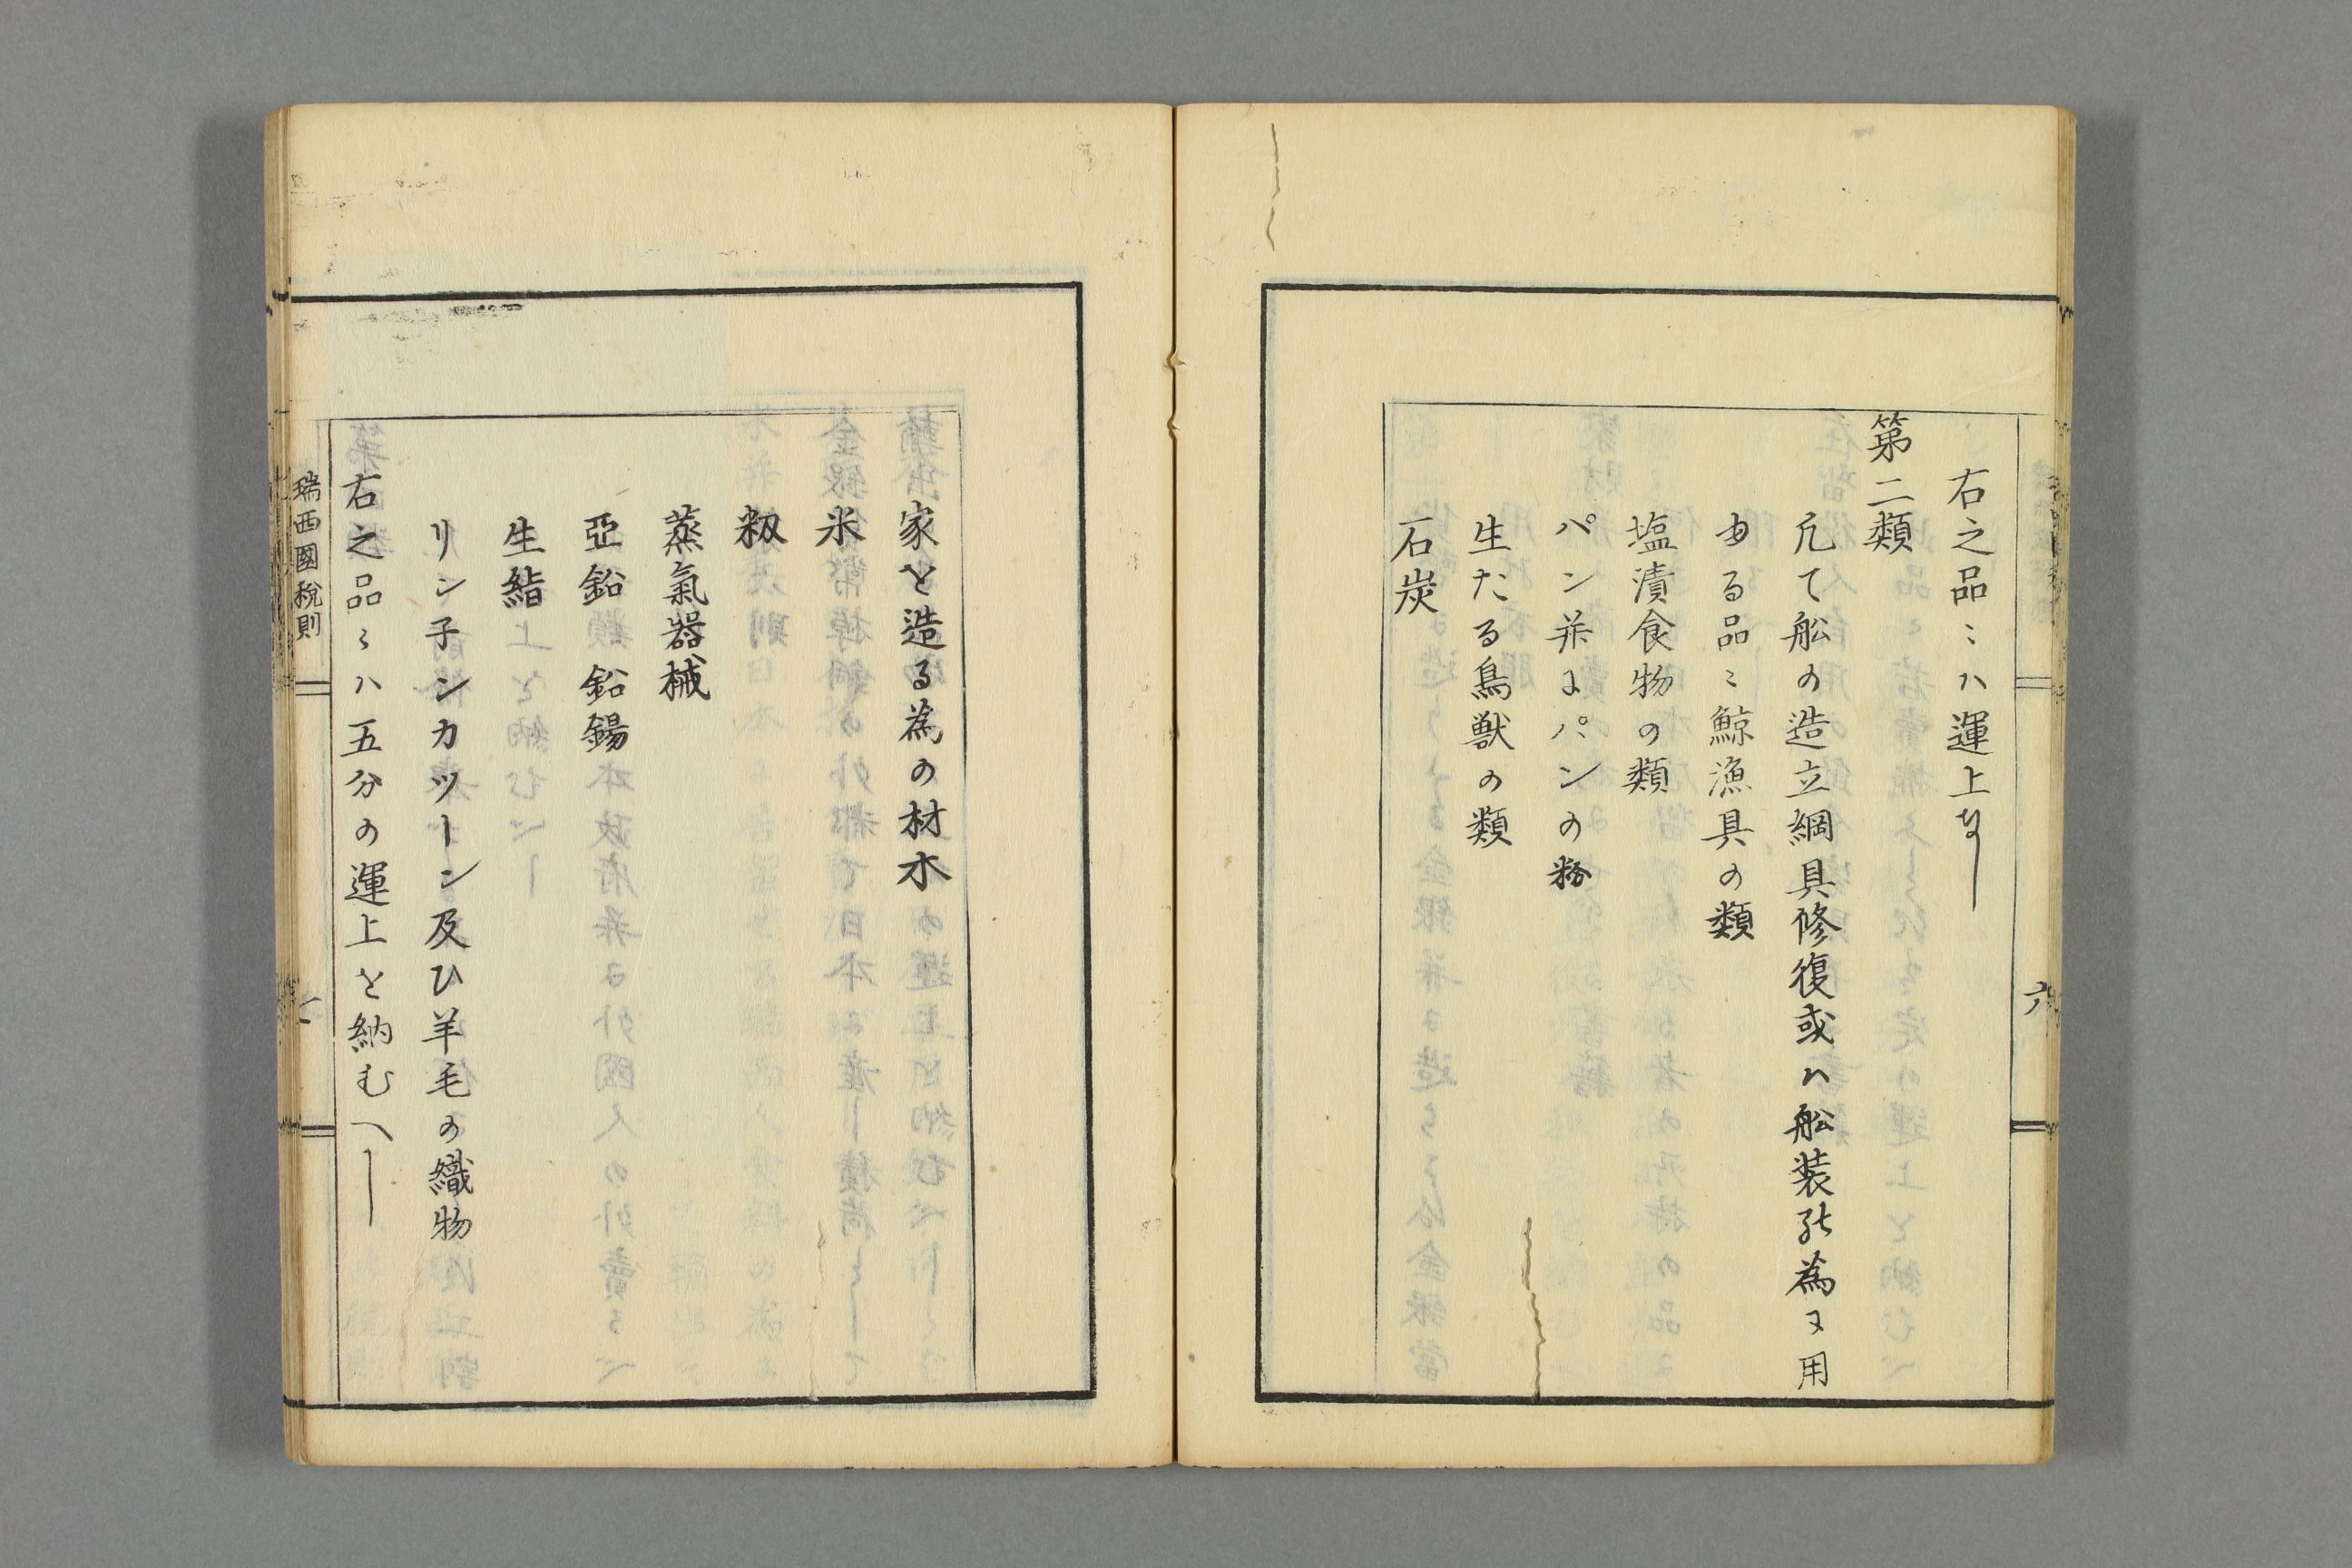 右之品ニハ運上なし
第二類
凢て舩の造立綱具修復或ハ舩装の為に用
ゆる品ニ鯨漁具の類
塩漬食物の類
パン并にパンの粉
生たる鳥獣の類
石炭
六
家を造る為の材木
米
籾
蒸氣器械
亞鉛 鉛 錫
生絹
リン子ンカツーン及ひ羊毛の織物
右之品ニハ五分の運上を納むへし
瑞西國税則